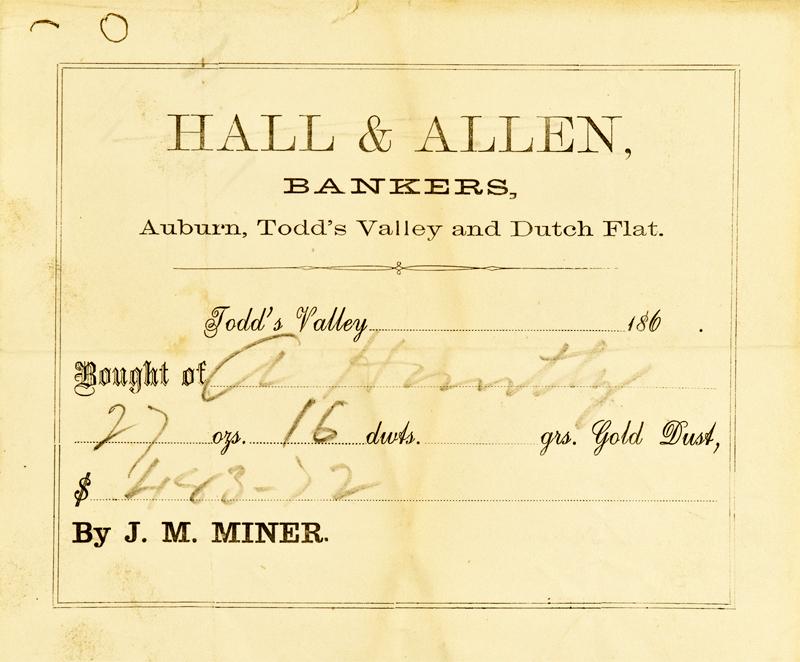 HALL & ALLEN,
BANKERS,
Auburn, Todd's Valley and Dutch Flat.
Todd's Valley 186 .
Bought of A Huntly
27 ozs. 16 dwts. grs. Gold Dust,
$ 483-72
By J. M. MINER.